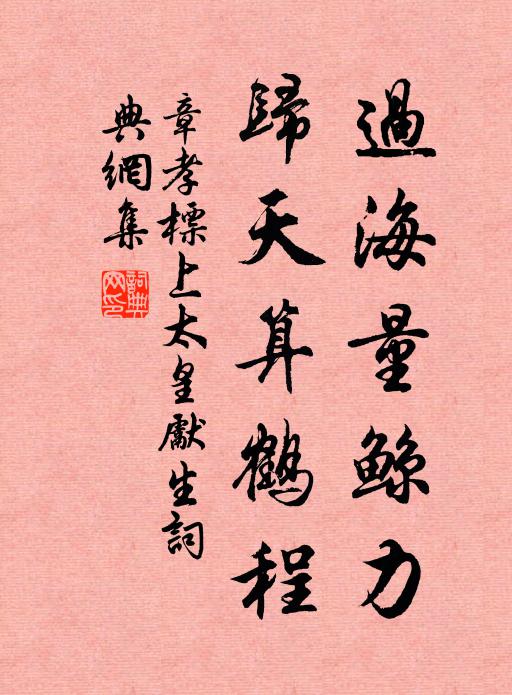 過海量鯨力
歸天算鶴程
章孝標上太皇獻生詞
典網集
詞典網印